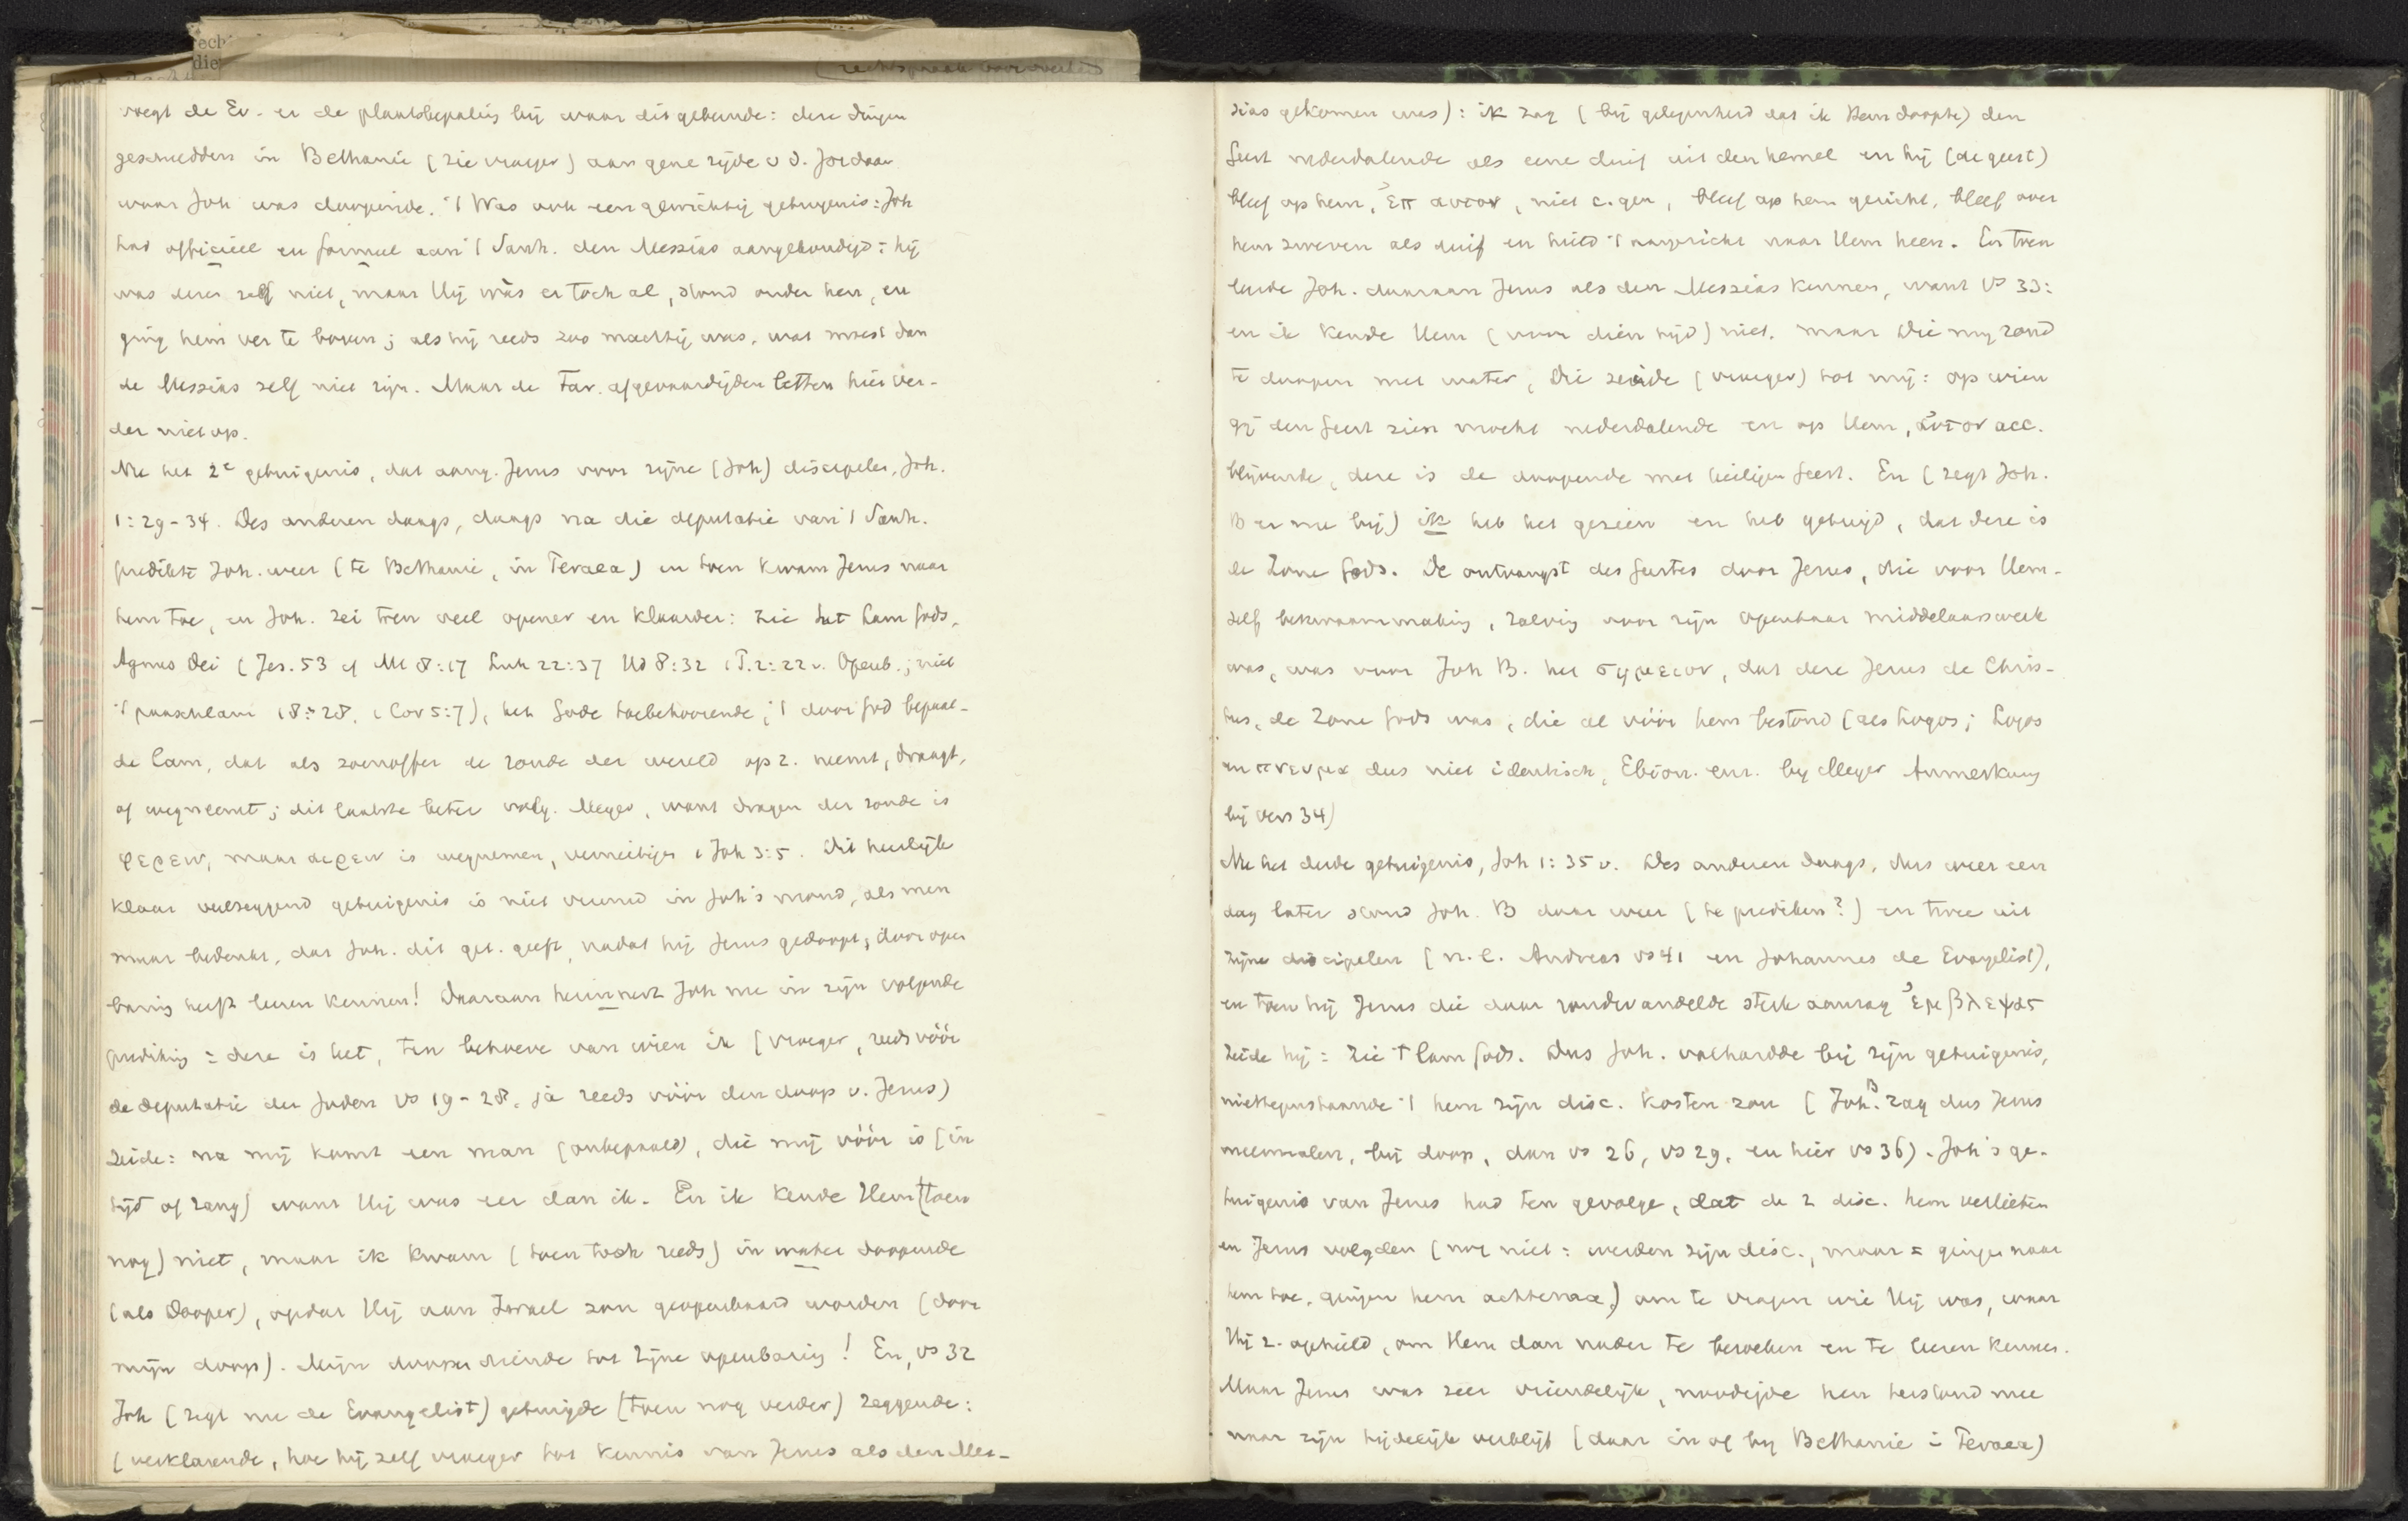 rech
die
voegt de Ev. er de plaatsbepaling bij waar dit gebeurde: deze dingen
geschiedden in Bethanië (zie vroeger) aan gene zijde v d. Jordaan
waar Joh was doopende. 't Was ook een gewichtig getuigenis: Joh
had officieel en formeel aan 't Sanh. den Messias aangekondigd: hij
was deze zelf niet, maar Hij wàs er toch al, stond onder hen, en
ging hem ver te boven; als hij reeds zoo machtig was, wat moest dan
de Messias zelf niet zijn. Maar de Far. afgevaardigden letten hier ver-
der niet op.
Nu het 2e getuigenis, dat aang. Jezus voor zijne (Joh) discipelen, Joh.
1:29-34. Des anderen daags, daags na die deputatie van 't Sanh.
predikte Joh. weer (te Bethanië, in Peraea) en toen kwam Jezus naar
hem toe, en Joh. zei toen veel opener en klaarder: zie het Lam Gods,
Agnus Dei (Jes. 53 cf Mt 8:17 Luk 22:37 Hd 8:32 1 P. 2:22 v. Openb.; niet
't paaschlam 18:28, 1 Cor 5:7), het Gode toebehoorende, 't door God bepaal-
de lam, dat als zoenoffer de zonde der wereld op z. neemt, draagt,
of wegneemt; dit laatste beter volg. Meyer, want dragen der zonde is
φερειν, maar αιρειν is wegnemen, vernietigen 1 Joh 3:5. Dit heerlijk
klaar veelzeggend getuigenis is niet vreemd in Joh's mond, als men
maar bedenkt, dat Joh. dit get. geeft, nadat hij Jezus gedoopt, door open
baring heeft leeren kennen! Daaraan herinnert Joh nu in zijn volgende
prediking: deze is het, ten behoeve van wien ik (vroeger, reeds vóór
de deputatie der Joden vs 19-28, ja reeds vóór den doop v. Jezus)
zeide: na mij komt een man (onbepaald), die mij vóór is (in
tijd of rang) want Hij was eer dan ik. En ik kende Hem (toen
nog) niet, maar ik kwam (toen toch reeds) in water doopende
(als Dooper), opdat Hij aan Israel zou geopenbaard worden (door
mijn doop). Mijn doopen diende tot zijne openbaring! En, vs 32
Joh (zegt nu de Evangelist) getuigde (toen nog verder) zeggende:
(verklarende, hoe hij zelf vroeger tot kennis van Jezus als den Mes-
sias gekomen was): ik zag (bij gelegenheid dat ik Hem doopte) den
Geest nederdalende als eene duif uit den hemel en hij (de geest)
bleef op hem, ἐπ αυτον, niet c. gen, bleef op hem gericht, bleef over
hem zweven als duif en hield 't aangezicht naar Hem heen. En toen
leerde Joh. daaraan Jezus als den Messias kennen, want vs 33:
en ik kende Hem (voor dien tijd) niet, maar Die mij zond
te doopen met water, Die zeide (vroeger) tot mij: op wien
gij den Geest zien mocht nederdalende en op Hem, ἀυτον acc.
blijvende, deze is de doopende met heiligen Geest. En (zegt Joh.
B er nu bij) ik heb het gezien en heb getuigd, dat deze is
de Zone Gods. De ontvangst des Geestes door Jezus, die voor Hem-
zelf bekwaammaking, zalving voor zijn openbaar middelaarswerk
was, was voor Joh B. het σημειον, dat deze Jezus de Chris-
tus, de Zone Gods was, die al vóór hem bestond (als Logos; Logos
en πνευμα dus niet identisch, Ebion. enz. bij Meyer Anmerkung
bij vers 34)
Nu het derde getuigenis, Joh 1:35 v. Des anderen daags, dus weer een
dag later stond Joh. B daar weer (te prediken?) en twee uit
zijne discipelen (n.l. Andreas vs 41 en Johannes de Evangelist),
en toen hij Jezus die daar rondwandelde sterk aanzag ἐμβλεψας
zeide hij: Zie 't lam Gods. Dus Joh. volhardde bij zijn getuigenis,
niettegenstaande 't hem zijn disc. kosten zou (Joh. B zag dus Jezus
meermalen, bij doop, dan vs 26, vs 29, en hier vs 36). Joh's ge-
tuigenis van Jezus had ten gevolge, dat de 2 disc. hem verlieten
en Jezus volgden (nog niet: werden zijn disc., maar = gingen naar
hem toe, gingen hem achterna,) om te vragen wie Hij was, waar
Hij z. ophield, om Hem dan nader te bezoeken en te leeren kennen.
Maar Jezus was zeer vriendelijk, noodigde hen terstond mee
naar zijn tijdelijk verblijf (daar in of bij Bethanië in Peraea)